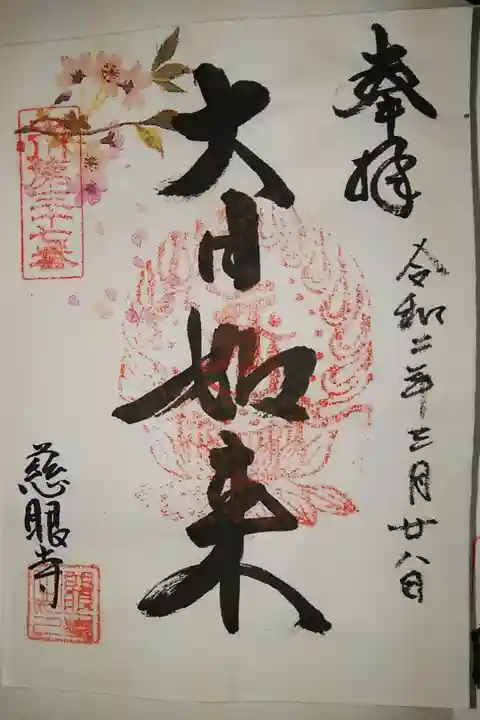 奉拝
令和二年三月廿八日
大日如来
第三十七番
慈眼寺